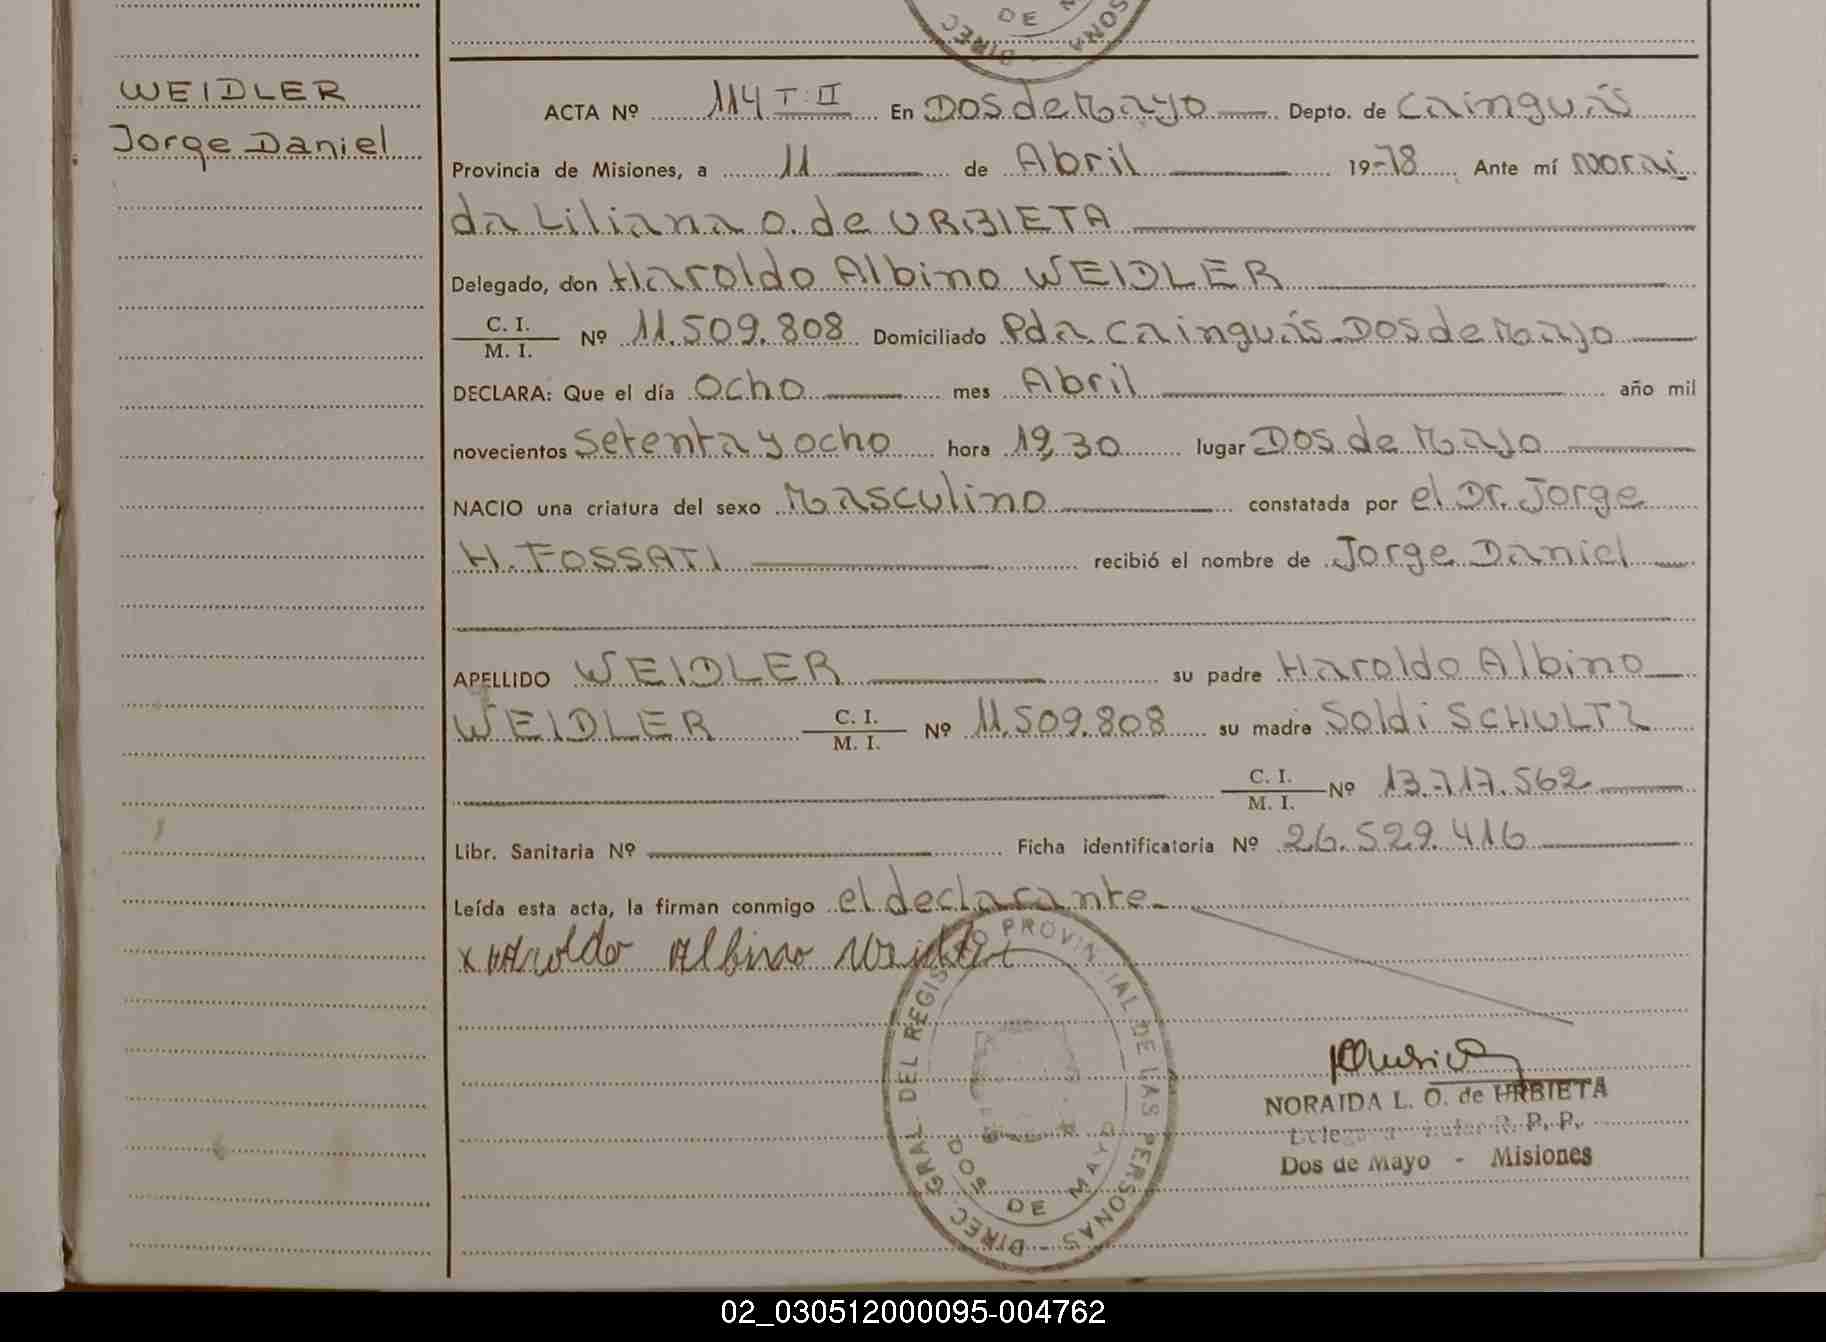 DIREC
DE
SONA
WEIDLER
Jorge Daniel
ACTA Nº 114 T:II En Dos de Mayo Depto. de Cainguás
Provincia de Misiones, a 11 de Abril 19-78 Ante mí Norai
da Liliana O. de URBIETA
Delegado, don Haroldo Albino WEIDLER
C. I.
M. I. Nº 11.509.808 Domiciliado Pda Cainguás-Dos de Mayo
DECLARA: Que el día Ocho mes Abril año mil
novecientos Setenta y ocho hora 19,30 lugar Dos de Mayo
NACIO una criatura del sexo Masculino constatada por el Dr. Jorge
H. FOSSATI recibió el nombre de Jorge Daniel
APELLIDO WEIDLER su padre Haroldo Albino
WEIDLER C. I. M. I. Nº 11.509.808 su madre Soldi SCHULTZ
C. I. M. I. Nº 13.717.562
Libr. Sanitaria Nº Ficha identificatoria Nº 26.529.416
Leída esta acta, la firman conmigo el declarante.
x Haroldo Albino Weidler
DIREC. GRAL DEL REGISTRO PROVINCIAL DE LAS PERSONAS
DOS DE MAYO
NORAIDA L. O. de URBIETA
R. P. P.
Dos de Mayo - Misiones
02_030512000095-004762